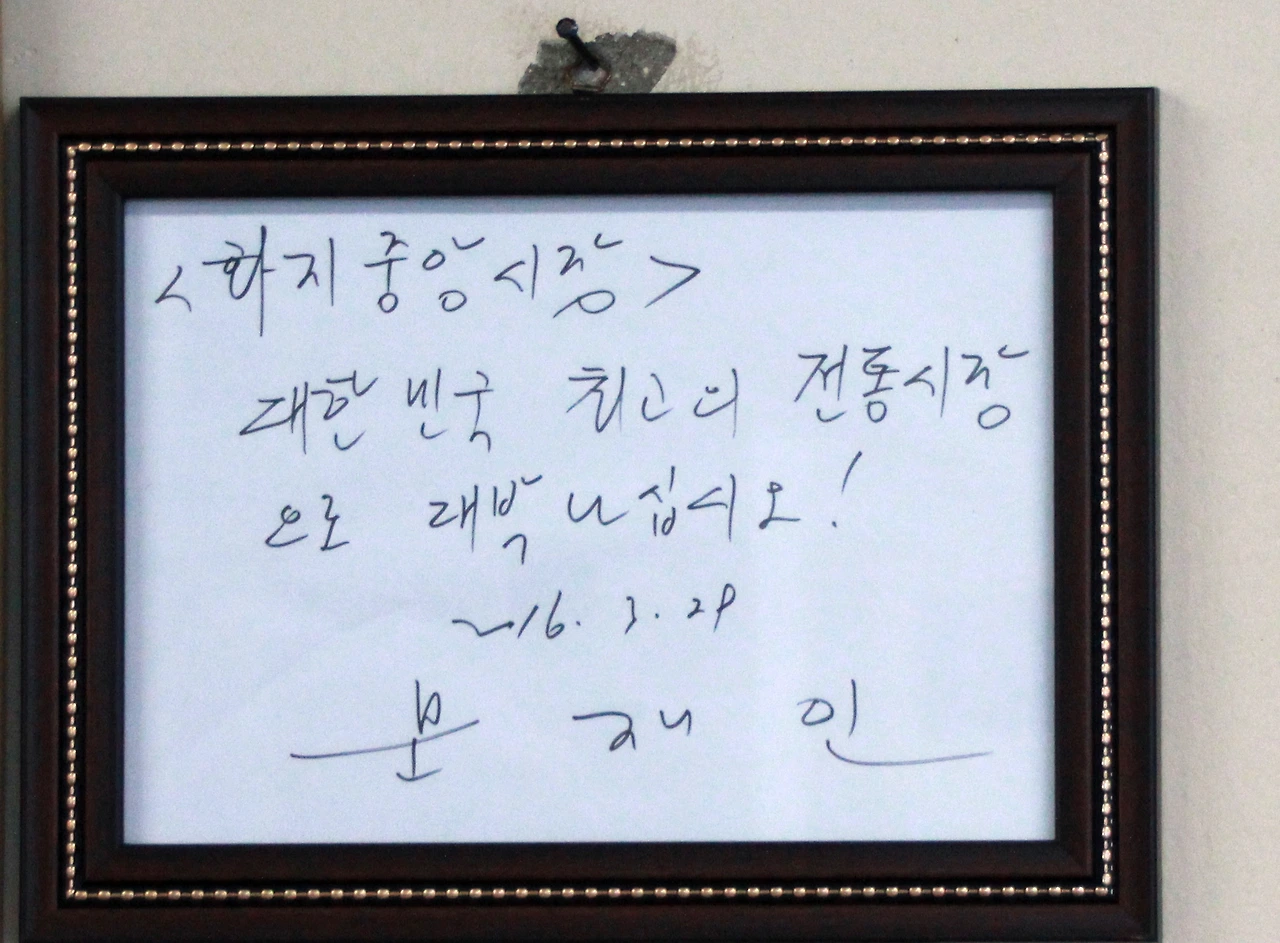 <화지중앙시장>
대한민국 최고의 전통시장
으로 대박 나십시오!
2016. 3. 29
문재인